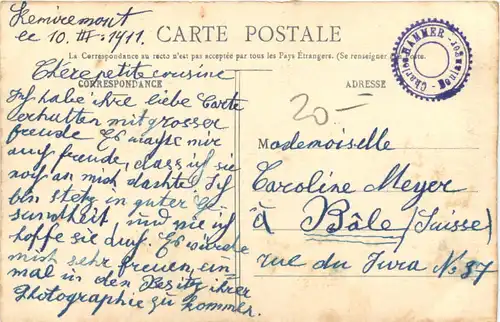 Remiremont
le 10. III. 1911.
CARTE POSTALE
La Correspondance au recto n'est pas acceptée par tous les Pays Étrangers. (Se renseigner à la Poste.
CORRESPONDANCE
ADRESSE
HAMMER
20-
Chère petite cousine
Ich habe ihre liebe Carte
erhalten mit grosser
freude Es magte mir
auf freude, dass ich sie
noch an mich dachte, Ich
bin stetz in guter Ge
sundheit und wie ich
hoffe sie auf. Es würde
mich sehr freuen, ein
mal in den Besitz ihrer
Photographie zu kommen.
Mademoiselle
Caroline Meyer
à Bâle (Suisse)
rue du Jura No 37